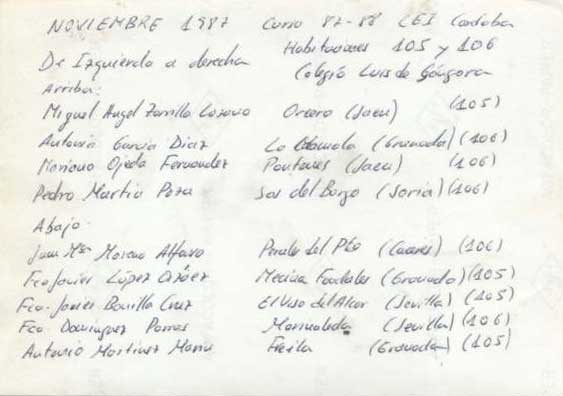 NOVIEMBRE 1987 Curso 87-88 CEI Cordoba
Habitaciones 105 y 106
De Izquierda a derecha Colegio Luis de Góngora
Arriba:
Miguel Angel Zorrilla Lozano Orcera (Jaen) (105)
Antonio Garcia Diaz La (Granada) (106)
Mariano Ojeda Fernandez Pontones (Jaen) (106)
Pedro Martin Poza del Burgo (Soria) (106)
Abajo.
Juan Mª Moreno Alfaro Perales del Pto (Caceres) (106)
Fco Javier López Mecina Fondales (Granada) (105)
Fco-Javier Bonilla Cruz El Viso del Alcor (Sevilla) (105)
Fco. Dominguez Porras Marinaleda (Sevilla) (106)
Antonio Martinez Marin Freila (Granada) (105)